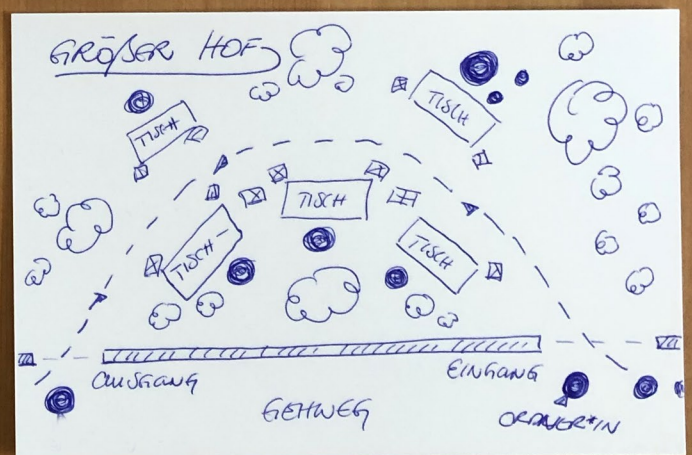 GRÖẞER HOF
TISCH
TISCH
TISCH
TISCH
TISCH
AUSGANG
EINGANG
GEHWEG
ORDNER*IN